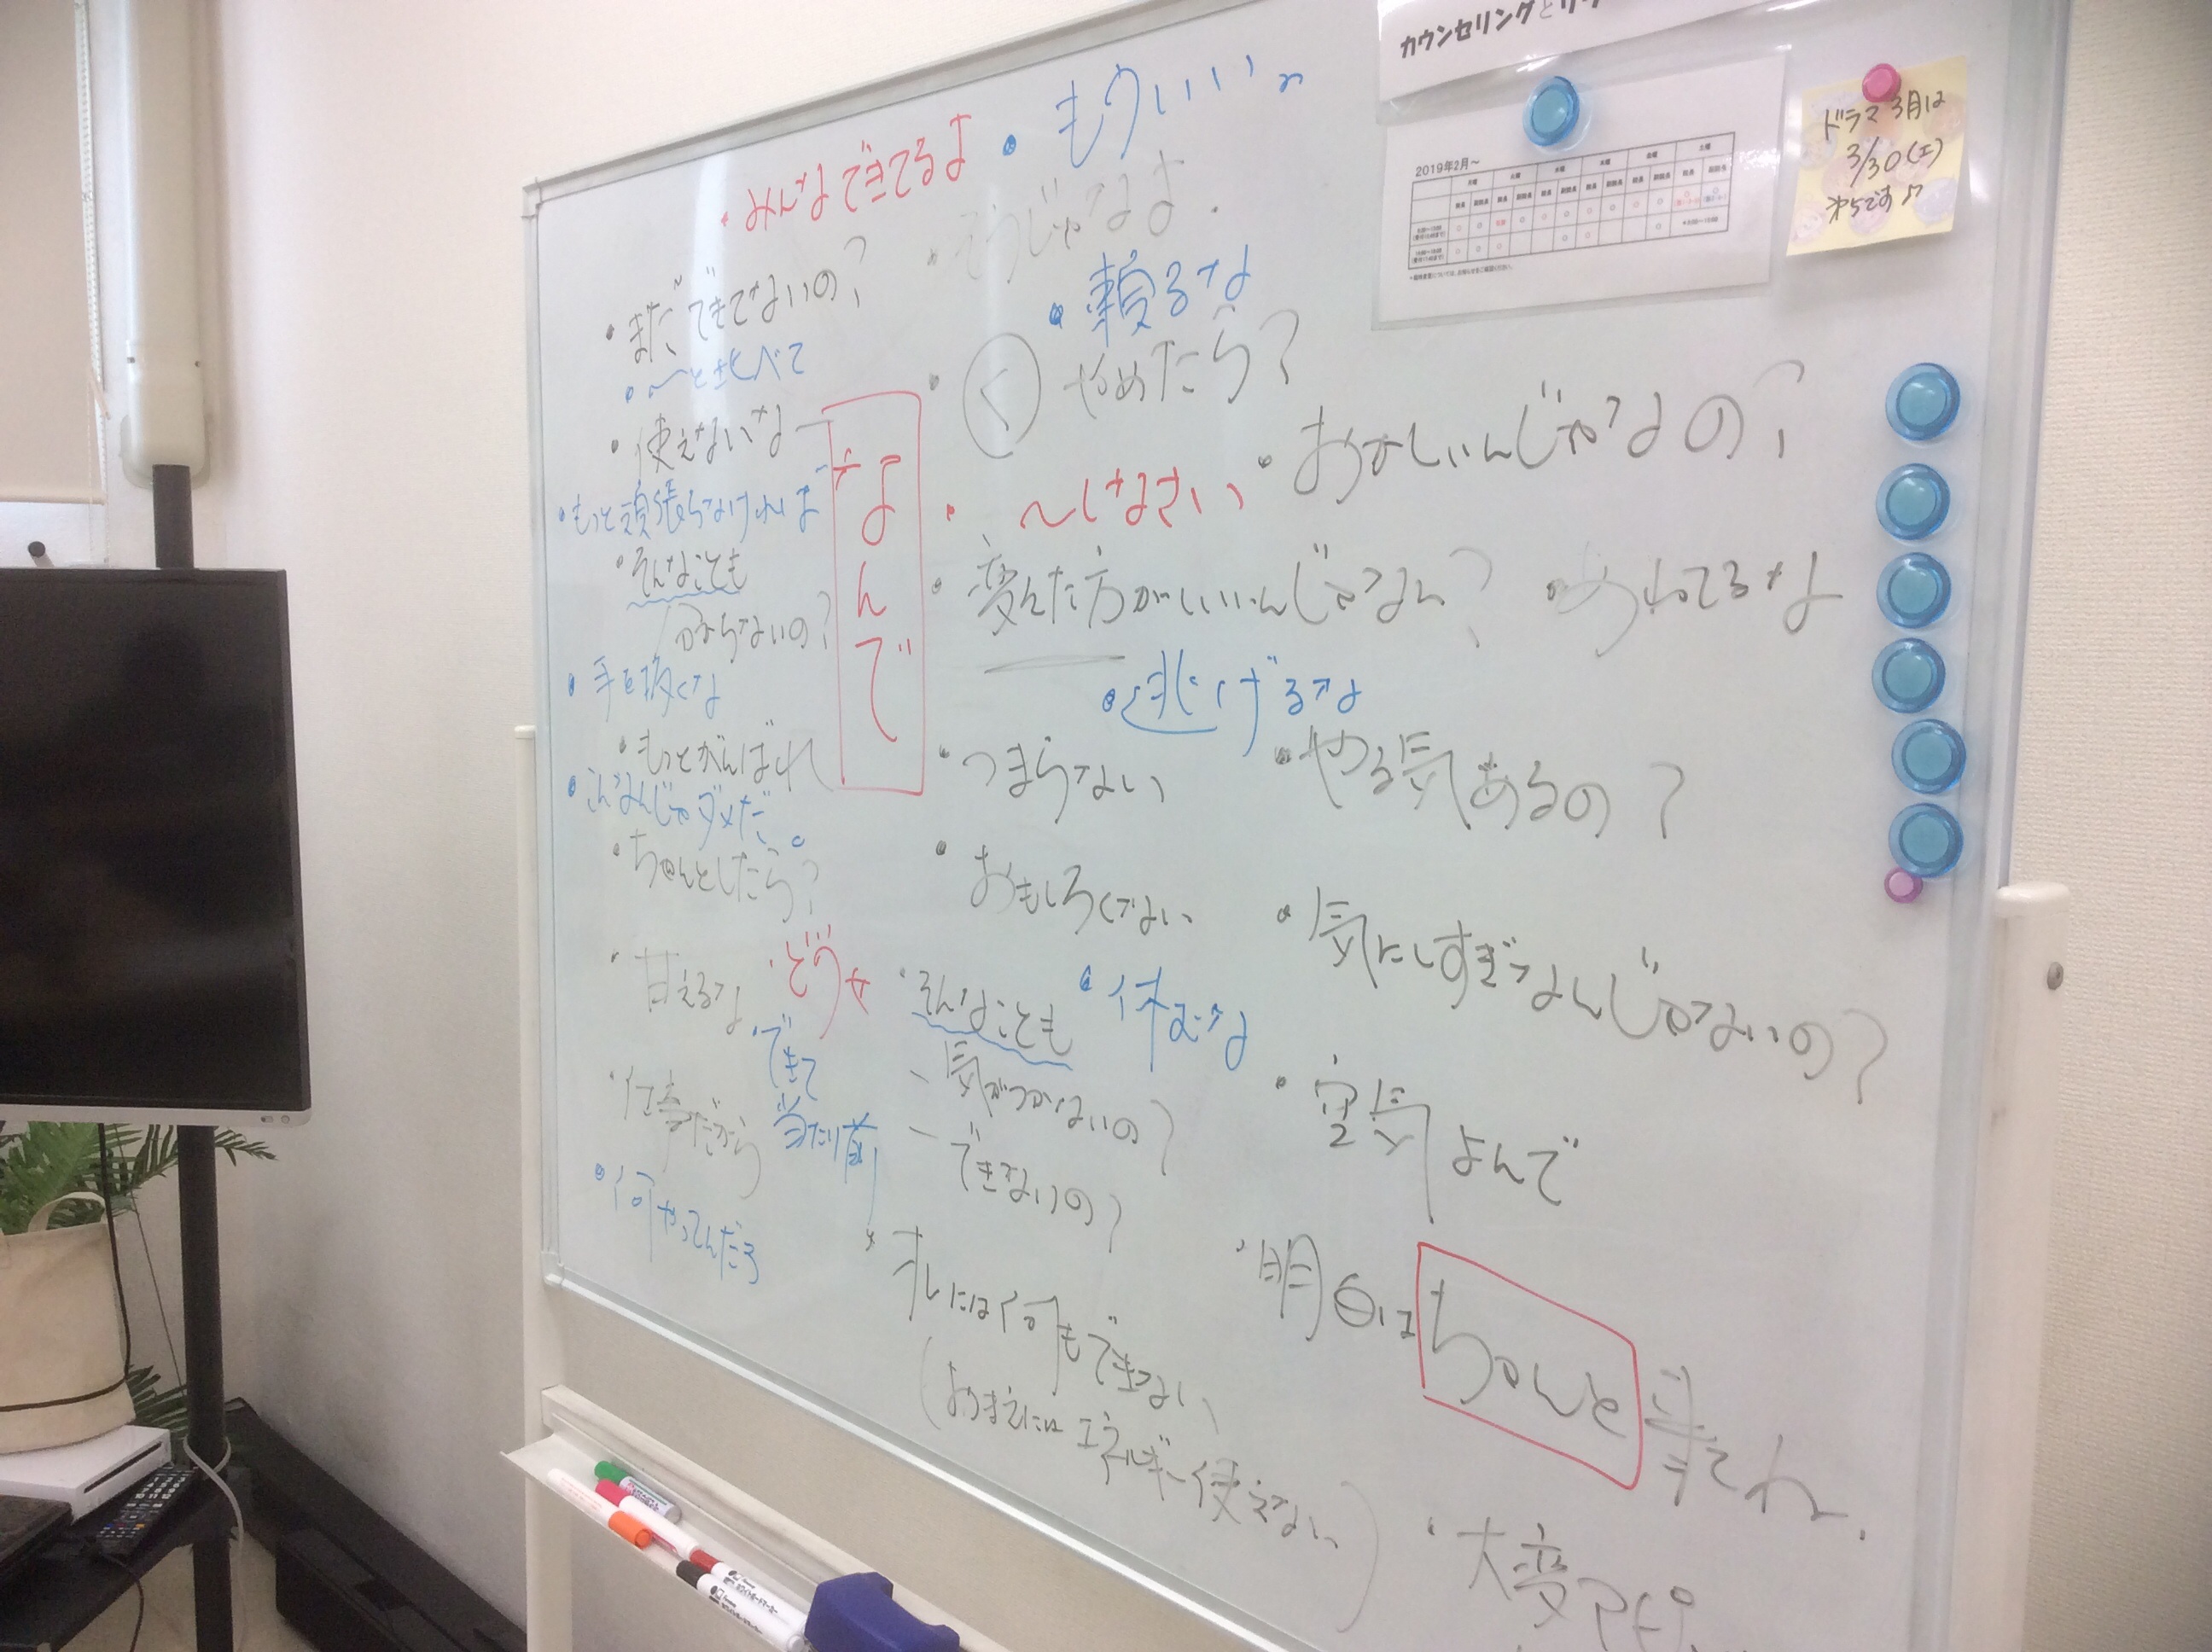 カウンセリングと
2019年2月〜
ドラマ 3月は
3/30(土)
です♪
・みんなできてるよ
・もういい。
・そうじゃなくて
・まだできてないの?
・頼るな
・〜と比べて
・やめたら?
・使えないなー
なんで
・おかしいんじゃないの?
・もっと頑張らなければ
・〜しなさい
・そんなことも
分からないの?
・変えた方がいいんじゃない?
・あまえてるな
・手を抜くな
・逃げるな
・もっとがんばれ
・つまらない
・やる気あるの?
・こんなんじゃダメだ。
・ちゃんとしたら?
・おもしろくない
・気にしすぎなんじゃないの?
・甘えるな
・どうせ
・そんなことも
- 気がつかないの?
- できないの?
・休むな
・できて
当たり前
・空気よんで
・仕事だから
・何やってんだろ
・オレには何もできない
(おまえにはエネルギー使えない)
・明日はちゃんと来てね.
・大変アピ